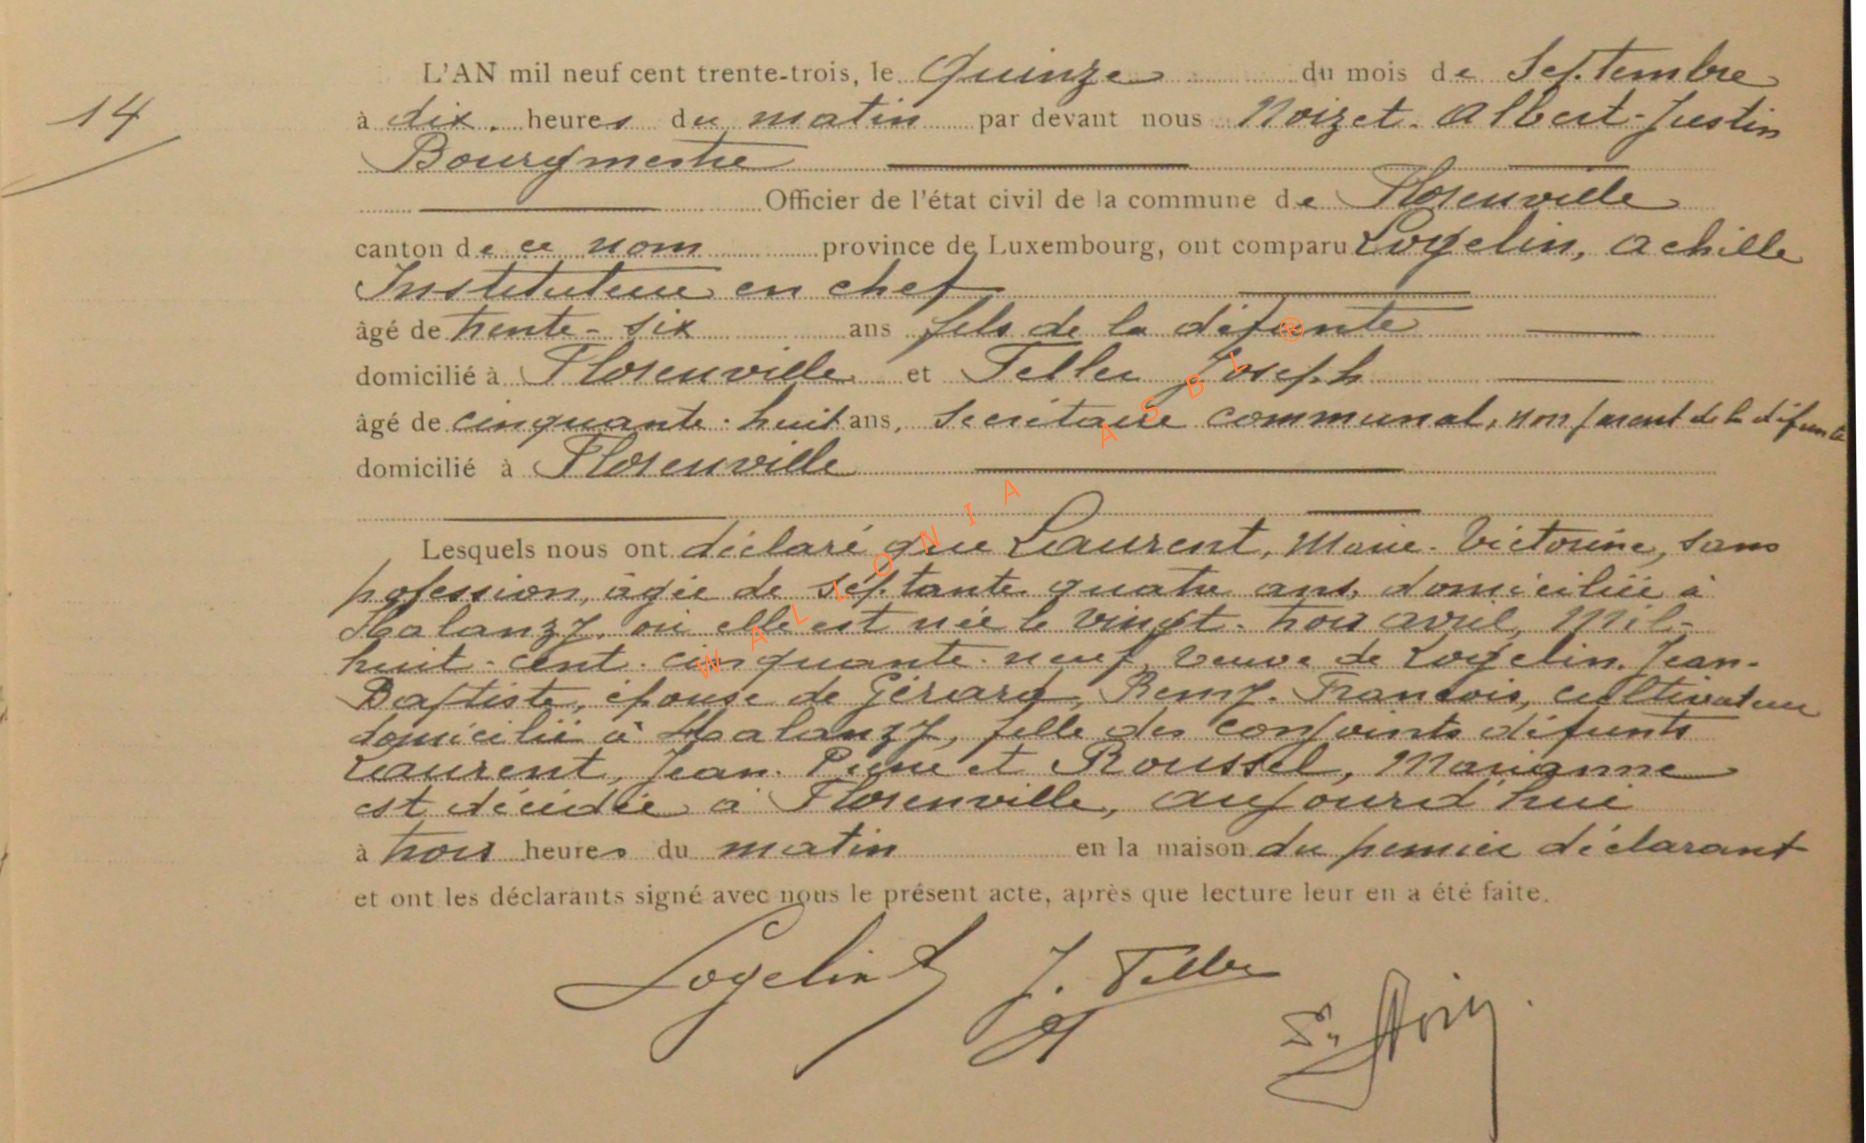 14
L'AN mil neuf cent trente-trois, le Quinze du mois de Septembre
à dix heures du matin par devant nous Noizet Albert-Justin
Bourgmestre
Officier de l'état civil de la commune de Florenville
canton de ce nom province de Luxembourg, ont comparu Logelin, Achille
Instituteur en chef
âgé de trente-six ans fils de la défunte
domicilié à Florenville et Feller Joseph
âgé de cinquante-huit ans, Secrétaire communal, non parent de la défunte
domicilié à Florenville
Lesquels nous ont déclaré que Laurent, Marie-Victorine, sans
profession, âgée de septante quatre ans, domiciliée à
Halanzy, où elle est née le vingt-trois avril, Mil-
huit-cent-cinquante-neuf, veuve de Logelin, Jean-
Baptiste, épouse de Gérard, Remy-François, cultivateur
domicilié à Halanzy, fille des conjoints défunts
Laurent, Jean-Pierre et Roussel, Marianne
est décédée à Florenville, aujourd'hui
à trois heures du matin en la maison du premier déclarant
et ont les déclarants signé avec nous le présent acte, après que lecture leur en a été faite.
Logelin A J. Feller
WALLONIA ASBL ®